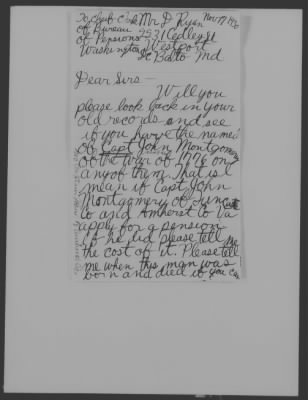 To Chief Clerk Mr D Ryan Nov 17 1930
of Bureau 2531 Cedley St
of Pensions Westport
Washington Balto Md
DC
Dear Sirs —
Will you
please look back in your
old records and see
if you have the named
of Capt John Montgomery
of the War of 1776 on
any of them. That is I
mean if Capt. John
Montgomery of
Co and Amherst Co Va
apply for a pension
if he did please tell me
the cost of it. Please tell
me when this man was
born and died if you can